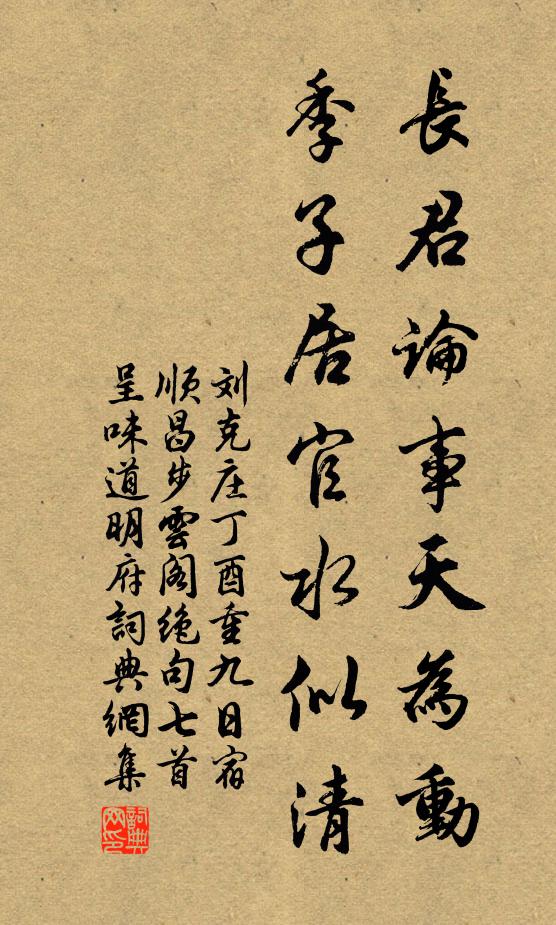 長君論事天為動
季子居官水似清
刘克庄丁酉重九日宿
順昌步雲阁绝句七首
呈味道明府詞典網集
詞典
网印